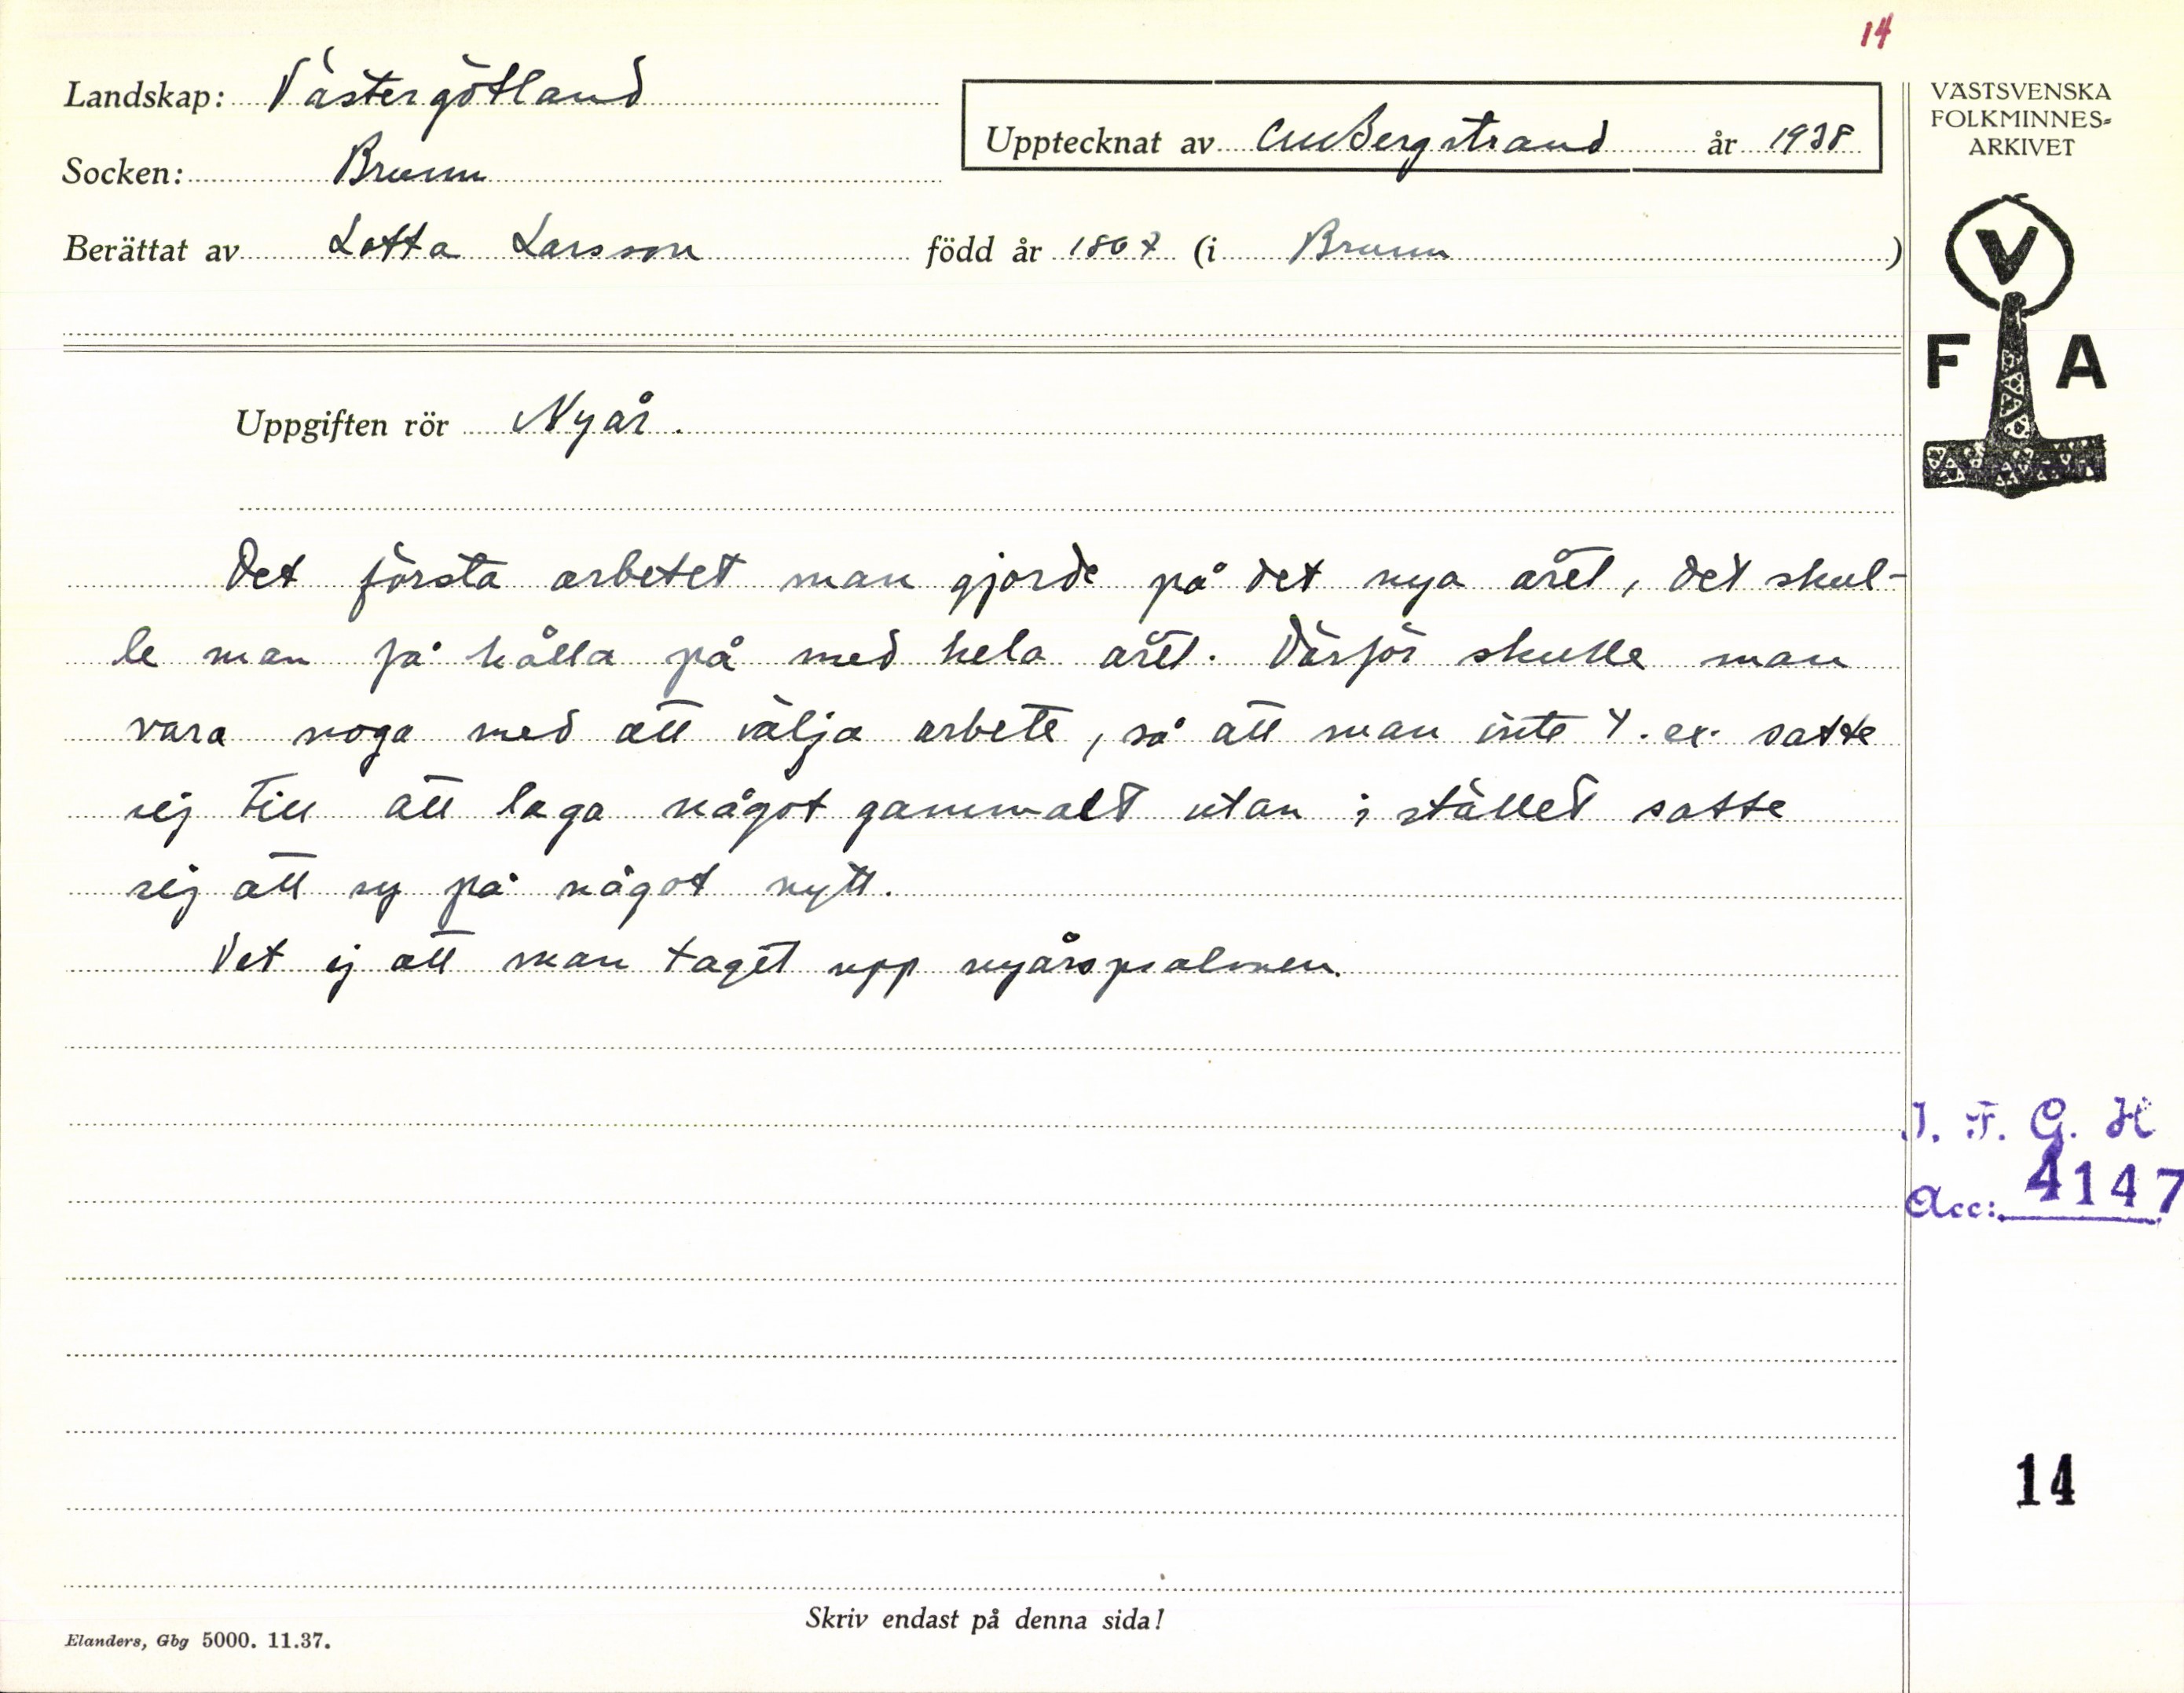 14
Landskap: Västergötland
Upptecknat av CMBergstrand år 1938
Socken: Brunn
Berättat av Lotta Larsson född år 1867 (i Brunn)
VÄSTSVENSKA
FOLKMINNES-
ARKIVET
V
F A
Uppgiften rör Nyår.
Det första arbetet man gjorde på det nya året, det skul-
le man få hålla på med hela året. Därför skulle man
vara noga med att välja arbete, så att man inte t.ex. satte
sej till att laga något gammalt utan i stället satte
sej att sy på något nytt.
Vet ej att man taget upp nyårspsalmen.
I. F. G. H
Acc: 4147
14
Skriv endast på denna sida!
Elanders, Gbg 5000. 11.37.